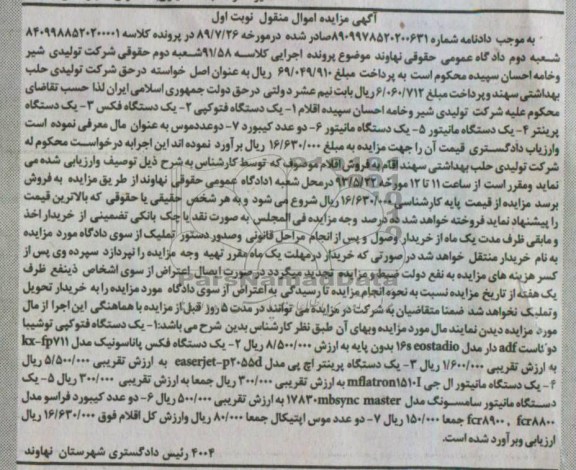 آگهی مزایده اموال منقول نوبت اول
به موجب دادنامه شماره ۸۹۰۹۹۷۸۵۲۰۲۰۰۶۳۱صادر شده درمورخه ۸۹/۷/۲۶ در پرونده کلاسه ۸۴۰۹۹۸۸۵۲۰۲۰۰۰۰۱
شعبه دوم دادگاه عمومی حقوقی نهاوند موضوع پرونده اجرایی کلاسه ۹۱/۵۸شعبه دوم حقوقی شرکت تولیدی شیر
وخامه احسان سپیده محکوم است به پرداخت مبلغ ۶۹/۰۴۹/۹۱۰ ریال به عنوان اصل خواسته درحق شرکت تولیدی حلب
بهداشتی سهند وپرداخت مبلغ ۶/۰۶۰/۷۱۲ریال بابت نیم عشر دولتی درحق دولت جمهوری اسلامی ایران لذا حسب تقاضای
محکوم علیه شرکت تولیدی شیر وخامه احسان سپیده اقلام ۱- یک دستگاه فتوکپی ۲- یک دستگاه فکس ۳-یک دستگاه
پرینتر ۴- یک دستگاه مانیتور ۵- یک دستگاه مانیتور ۶- دو عدد کیبورد ۷- دوعددموس به عنوان مال معرفی نموده است
وارزیاب دادگستری قیمت آن را جهت مزایده به مبلغ ۱۶/۶۳۰/۰۰۰ ریال برآورد نموده اند این اجرابه درخواست محکوم له
شرکت تولیدی حلب بهداشتی سهند اقدام به فروش اقلام موصوف که توسط کارشناس به شرح ذیل توصیف وارزیابی شده می
نماید ومقرر است از ساعت ۱۱ تا ۱۲ مورخه ۹۳/۵/۲۲ درمحل شعبه ۱دادگاه عمومی حقوقی نهاوند از طریق مزایده به فروش
برسد مزایده از قیمت پایه کارشناسی ۱۶/۶۳۰/۰۰۰ ریال شروع می شود و به هر شخص حقیقی یا حقوقی که بالاترین قیمت
را پیشنهاد نماید فروخته خواهد شد ده درصد وجه مزایده فی المجلس به صورت نقد یا چک بانکی تضمینی از خریدار اخذ
و مابقی ظرف مدت یک ماه از خریدار وصول و پس از انجام مراحل قانونی وصدور دستور تملیک از سوی دادگاه مورد مزایده
به نام خریدار منتقل خواهد شد درصورتی که خریدار درمهلت یک ماه مقرر تهیه وجه مزایده را نپردازد سپرده وی پس از
کسر هزینه های مزایده به نفع دولت ضبط و مزایده تجدید میگردد در صورت ایصال اعتراض از سوی اشخاص ذینفع ظرف
یک هفته از تاریخ مزایده نسبت به نحوه انجام مزایده تا رسیدگی به اعتراض از سوی دادگاه مورد مزایده را به خریدار تحویل
وتملیک نخواهد شد ضمنا متقاضیان به شرکت در مزایده می توانند در مدت ۵ روز قبل از مزایده با هماهنگی این اجرا از مال
مورد مزایده دیدن نمایند مال مورد مزایده وبهای آن طبق نظر کارشناس بدین شرح می باشد:۱- یک دستگاه فتوکپی توشیبا
دوکاست adf دار مدل 16s eostadio بدون پایه به ارزش ۸/۵۰۰/۰۰۰ ریال ۲- یک دستگاه فکس پاناسونیک مدل kx-fp711
به ارزش تقریبی ۱/۶۰۰/۰۰۰ ریال ۳- یک دستگاه پرینتر اچ پی مدل easerjet-p2055d به ارزش تقریبی ۵/۵۰۰/۰۰۰ ریال
۴- یک دستگاه مانیتور ال جی mflatron1510-I به ارزش تقریبی ۳۰۰/۰۰۰ ریال جمعا به ارزش تقریبی ۳۰۰/۰۰۰ ریال ۵- یک
دستگاه مانیتور سامسونگ مدل 17830mbsync master به ارزش تقریبی ۵۰۰/۰۰۰ ریال ۶- دو عدد کیبورد فراسو مدل
fcr8900 , fcr8800 جمعا ۱۵۰/۰۰۰ ریال ۷- دو عدد موس اپتیکال جمعا ۸۰/۰۰۰ ریال وارزش کل اقلام فوق ۱۶/۶۳۰/۰۰۰ ریال
ارزیابی وبرآورد شده است.
۴۰۰۴ رئیس دادگستری شهرستان نهاوند